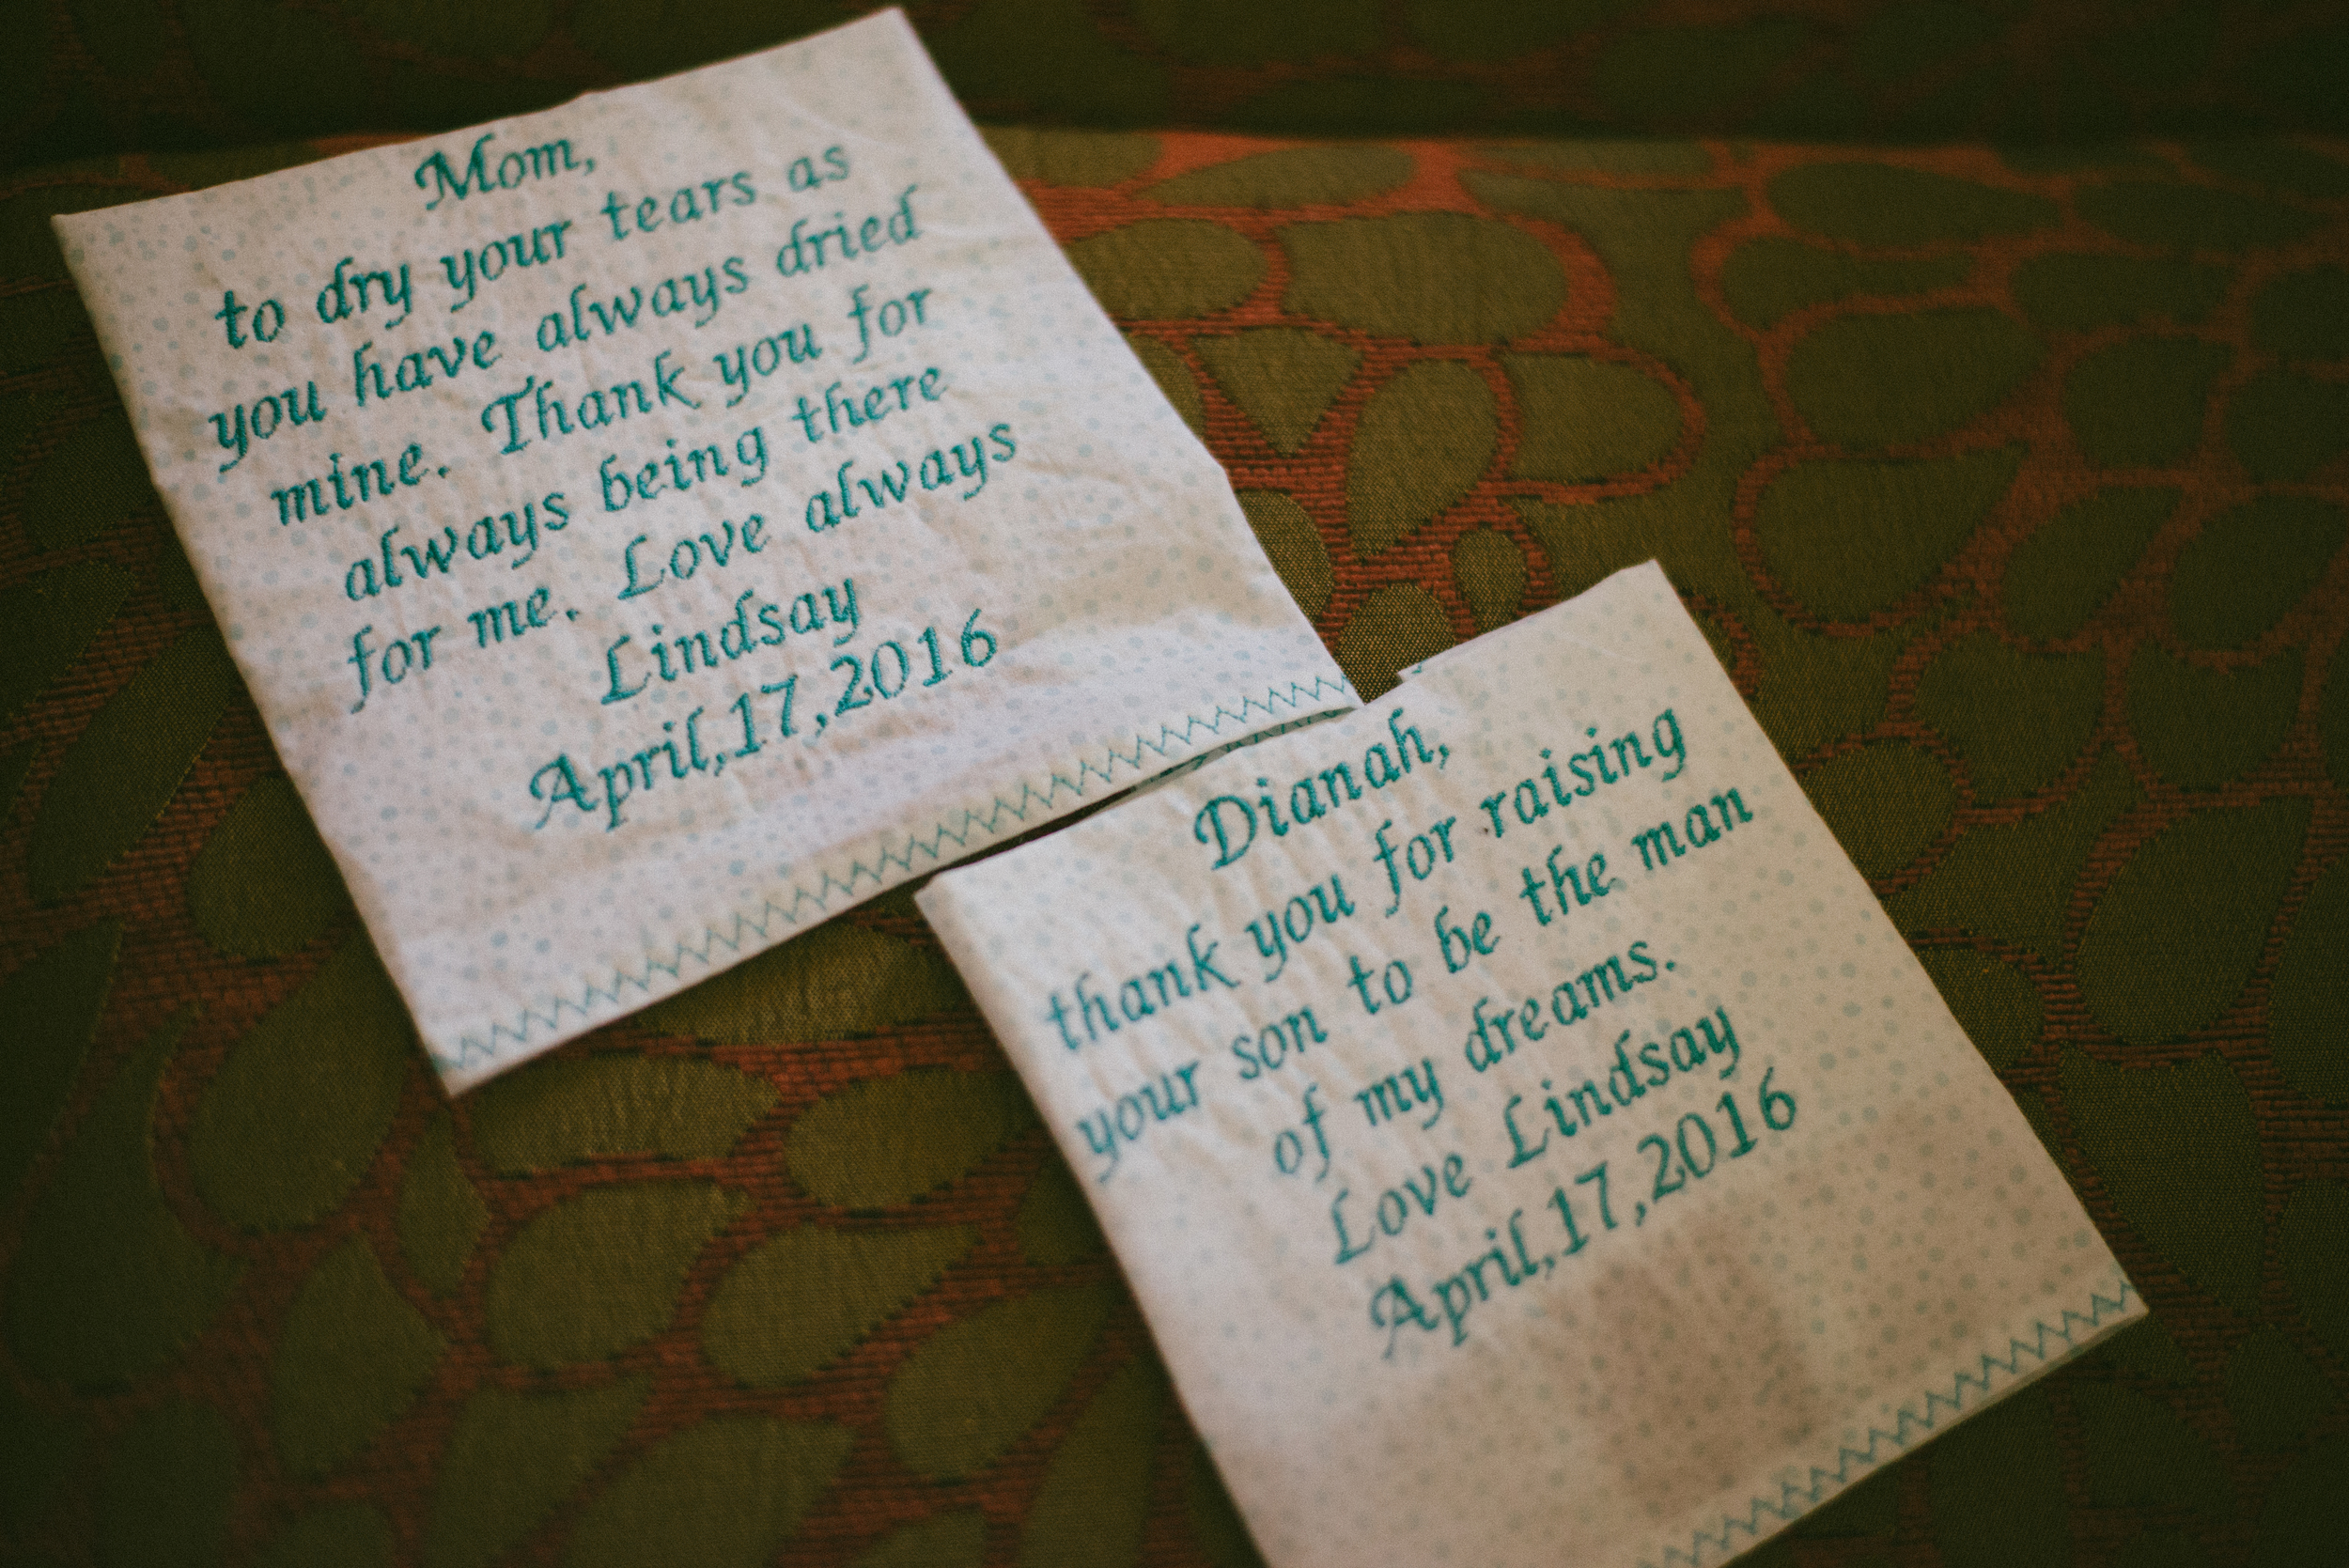 Mom,
to dry your tears as
you have always dried
mine. Thank you for
always being there
for me. Love always
Lindsay
April,17,2016
Dianah,
thank you for raising
your son to be the man
of my dreams.
Love Lindsay
April,17,2016